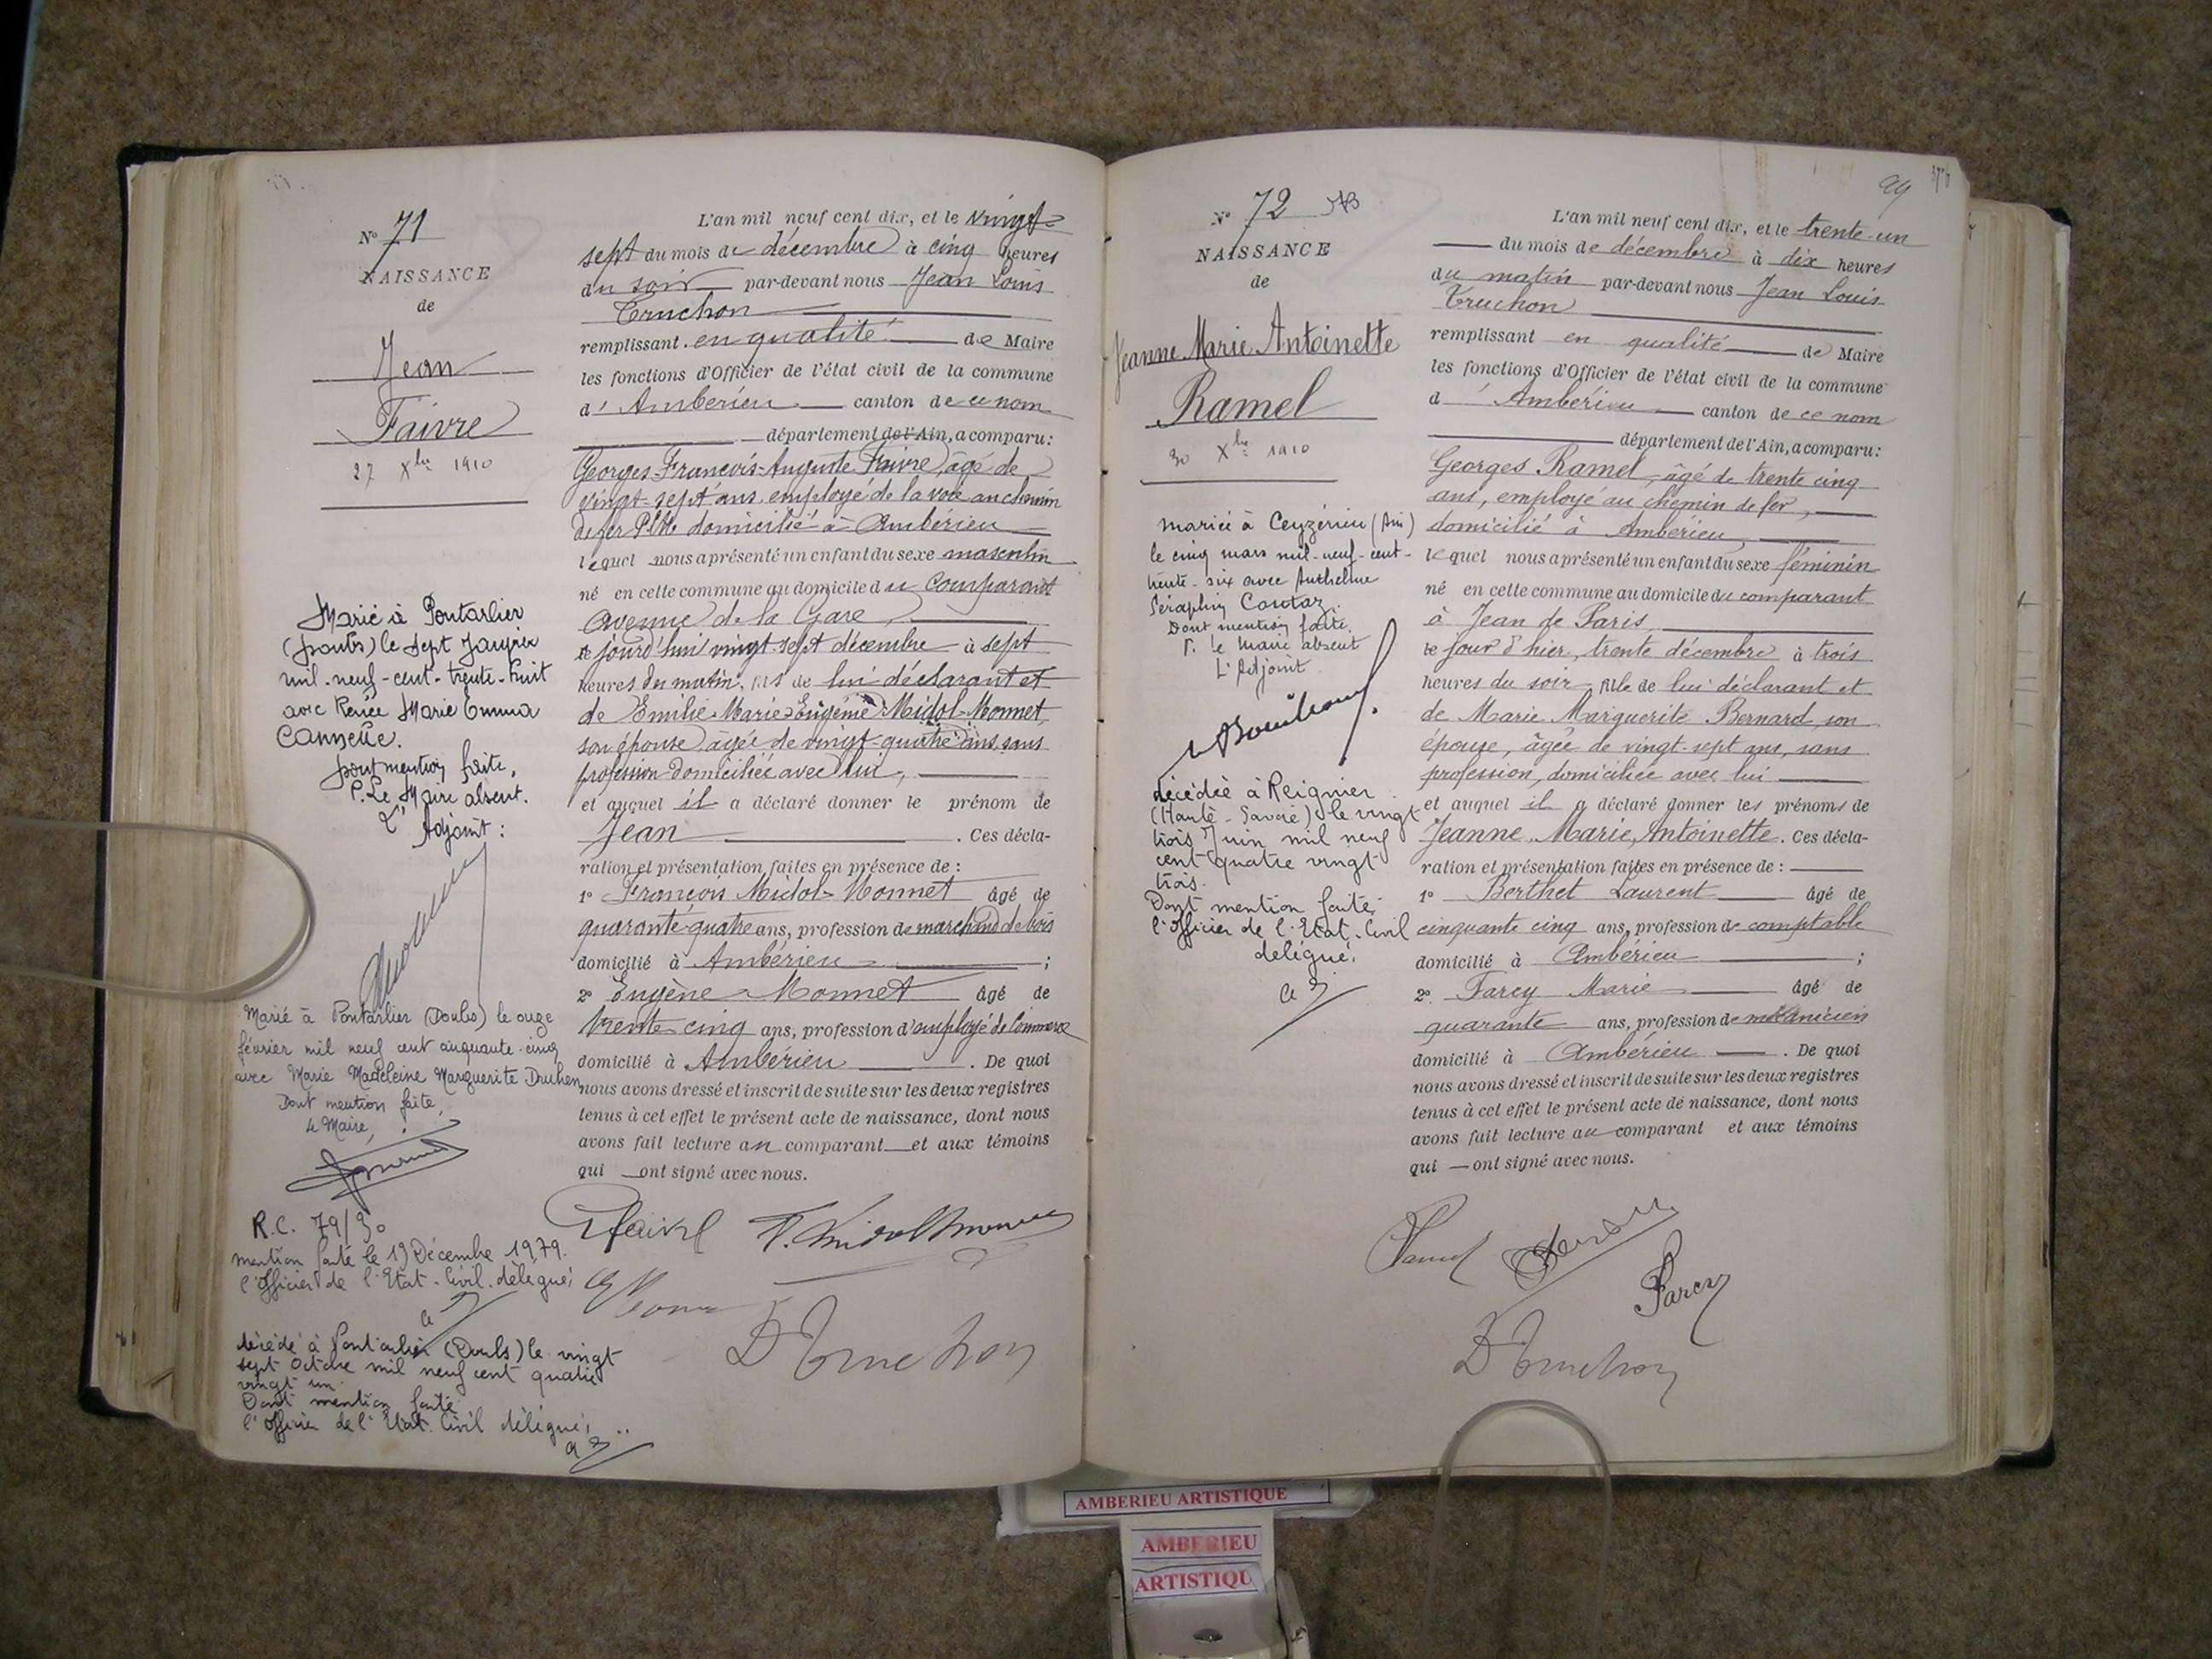 N° 71
NAISSANCE
de
Jean
Faivre
27 Xbre 1910
Marié à Pontarlier
(Doubs) le sept Janvier
mil-neuf-cent-trente-huit
avec Renée Marie Emma
Dont mention faite,
P. Le Maire absent.
L'Adjoint :
Marié à Pontarlier (Doubs) le onze
février mil neuf cent cinquante-cinq
avec Marie Madeleine Marguerite Druhen
Dont mention faite,
Le Maire,
R.C. 79/90
mention faite le 19 Décembre 1979.
l'officier de l'Etat-Civil délégué,
décédé à Pontarlier (Doubs) le vingt
sept Octobre mil neuf cent quatre
vingt un.
Dont mention faite
l'officier de l'Etat-Civil délégué,
L'an mil neuf cent dix, et le vingt-
sept du mois de décembre à cinq heures
du soir par-devant nous Jean Louis
Truchon
remplissant en qualité de Maire
les fonctions d'Officier de l'état civil de la commune
d'Ambérieu canton de ce nom
département de l'Ain, a comparu :
Georges-François-Auguste Faivre, âgé de
vingt-sept ans, employé de la voie au chemin
de fer PLM domicilié à Ambérieu
lequel nous a présenté un enfant du sexe masculin
né en cette commune au domicile du Comparant
Avenue de la Gare,
ce jourd'hui vingt-sept décembre à sept
heures du matin, fils de lui déclarant et
de Emilie-Marie-Eugénie Midol-Monnet,
son épouse, âgée de vingt-quatre ans, sans
profession domiciliée avec lui,
et auquel il a déclaré donner le prénom de
Jean . Ces décla-
ration et présentation faites en présence de :
1° François Midol-Monnet âgé de
quarante-quatre ans, profession de marchand de bois
domicilié à Ambérieu ;
2° Eugène Monnet âgé de
trente cinq ans, profession d'employé de Commerce
domicilié à Ambérieu . De quoi
nous avons dressé et inscrit de suite sur les deux registres
tenus à cet effet le présent acte de naissance, dont nous
avons fait lecture au comparant et aux témoins
qui ont signé avec nous.
Faivre F. Midol Monnet
Truchon
99
N° 72
NAISSANCE
de
Jeanne Marie Antoinette
Ramel
30 Xbre 1910
mariée à Ceyzérieu (Ain)
le cinq mars mil-neuf-cent-
trente-six avec Anthelme
Séraphin Coutaz.
Dont mention faite.
P. le Maire absent
L'Adjoint
décédée à Reignier
(Haute-Savoie) le vingt
trois Juin mil neuf
cent quatre vingt
trois.
Dont mention faite,
l'officier de l'Etat-Civil
délégué,
L'an mil neuf cent dix, et le trente-un
du mois de décembre à dix heures
du matin par-devant nous Jean Louis
Truchon
remplissant en qualité de Maire
les fonctions d'Officier de l'état civil de la commune
d'Ambérieu canton de ce nom
département de l'Ain, a comparu :
Georges Ramel, âgé de trente cinq
ans, employé au chemin de fer,
domicilié à Ambérieu,
lequel nous a présenté un enfant du sexe féminin
né en cette commune au domicile du comparant
à Jean de Paris
le jour d'hier, trente décembre à trois
heures du soir, fille de lui déclarant et
de Marie Marguerite Bernard, son
épouse, âgée de vingt-sept ans, sans
profession, domiciliée avec lui
et auquel il a déclaré donner les prénoms de
Jeanne Marie Antoinette. Ces décla-
ration et présentation faites en présence de :
1° Berthet Laurent âgé de
cinquante cinq ans, profession de comptable
domicilié à Ambérieu ;
2° Farcy Marie âgé de
quarante ans, profession de mécanicien
domicilié à Ambérieu . De quoi
nous avons dressé et inscrit de suite sur les deux registres
tenus à cet effet le présent acte de naissance, dont nous
avons fait lecture au comparant et aux témoins
qui ont signé avec nous.
Ramel
Farcy
Truchon
AMBERIEU ARTISTIQUE
AMBERIEU
ARTISTIQU